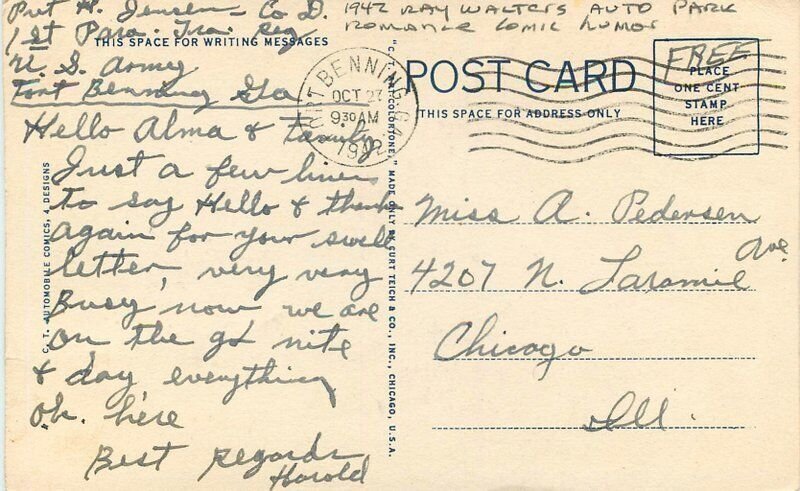 Pvt H. Jensen - Co D.
1st Para. Tra. Reg
U. S. Army
Fort Benning Ga
1942 RAY WALTERS AUTO PARK
ROMANCE COMIC HUMOR
THIS SPACE FOR WRITING MESSAGES
Hello Alma & family
Just a few lines
to say Hello & thank
again for your swell
letter, very very
Busy now we are
on the go nite
& day everything
o.k. here
Best regards
Harold
C. T. AUTOMOBILE COMICS, 4 DESIGNS
"C. T. ART-COLORTONE," MADE ONLY BY CURT TEICH & CO., INC., CHICAGO, U.S.A.
FORT BENNING GA.
OCT 27
9 30 AM
1942
POST CARD
THIS SPACE FOR ADDRESS ONLY
FREE
PLACE
ONE CENT
STAMP
HERE
Miss A. Pedersen
4207 N. Laramie Ave.
Chicago
Ill.